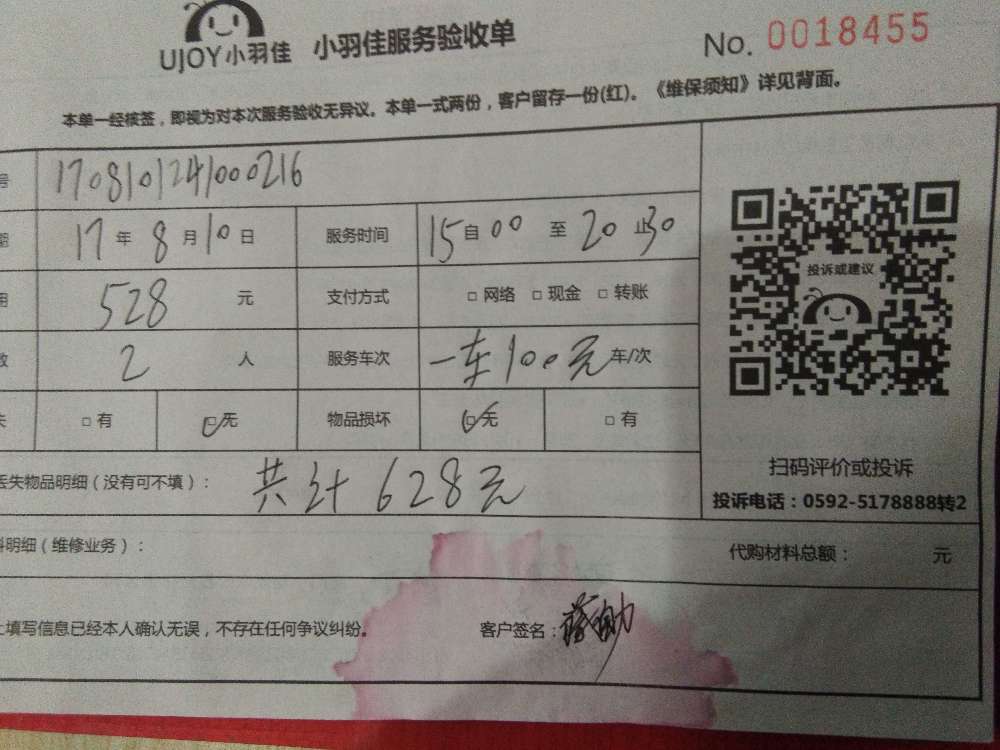 UJOY小羽佳 小羽佳服务验收单 No. 0018455
本单一经核签，即视为对本次服务验收无异议。本单一式两份，客户留存一份(红)。《维保须知》详见背面。
号 1708101241000216
期 17 年 8 月 10 日 服务时间 15 自 00 至 20 止 30
用 528 元 支付方式 □ 网络 □ 现金 □ 转账
数 2 人 服务车次 一车100元 车/次
失 □ 有 □ 无 物品损坏 □ 无 □ 有
投诉或建议
扫码评价或投诉
投诉电话：0592-5178888转2
丢失物品明细（没有可不填）： 共计628元
料明细（维修业务）： 代购材料总额： 元
上填写信息已经本人确认无误，不存在任何争议纠纷。 客户签名：